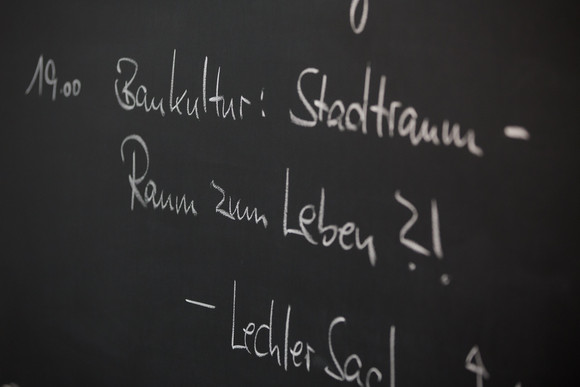 19.00 Baukultur: Stadtraum -
Raum zum Leben ?!
- Lechler